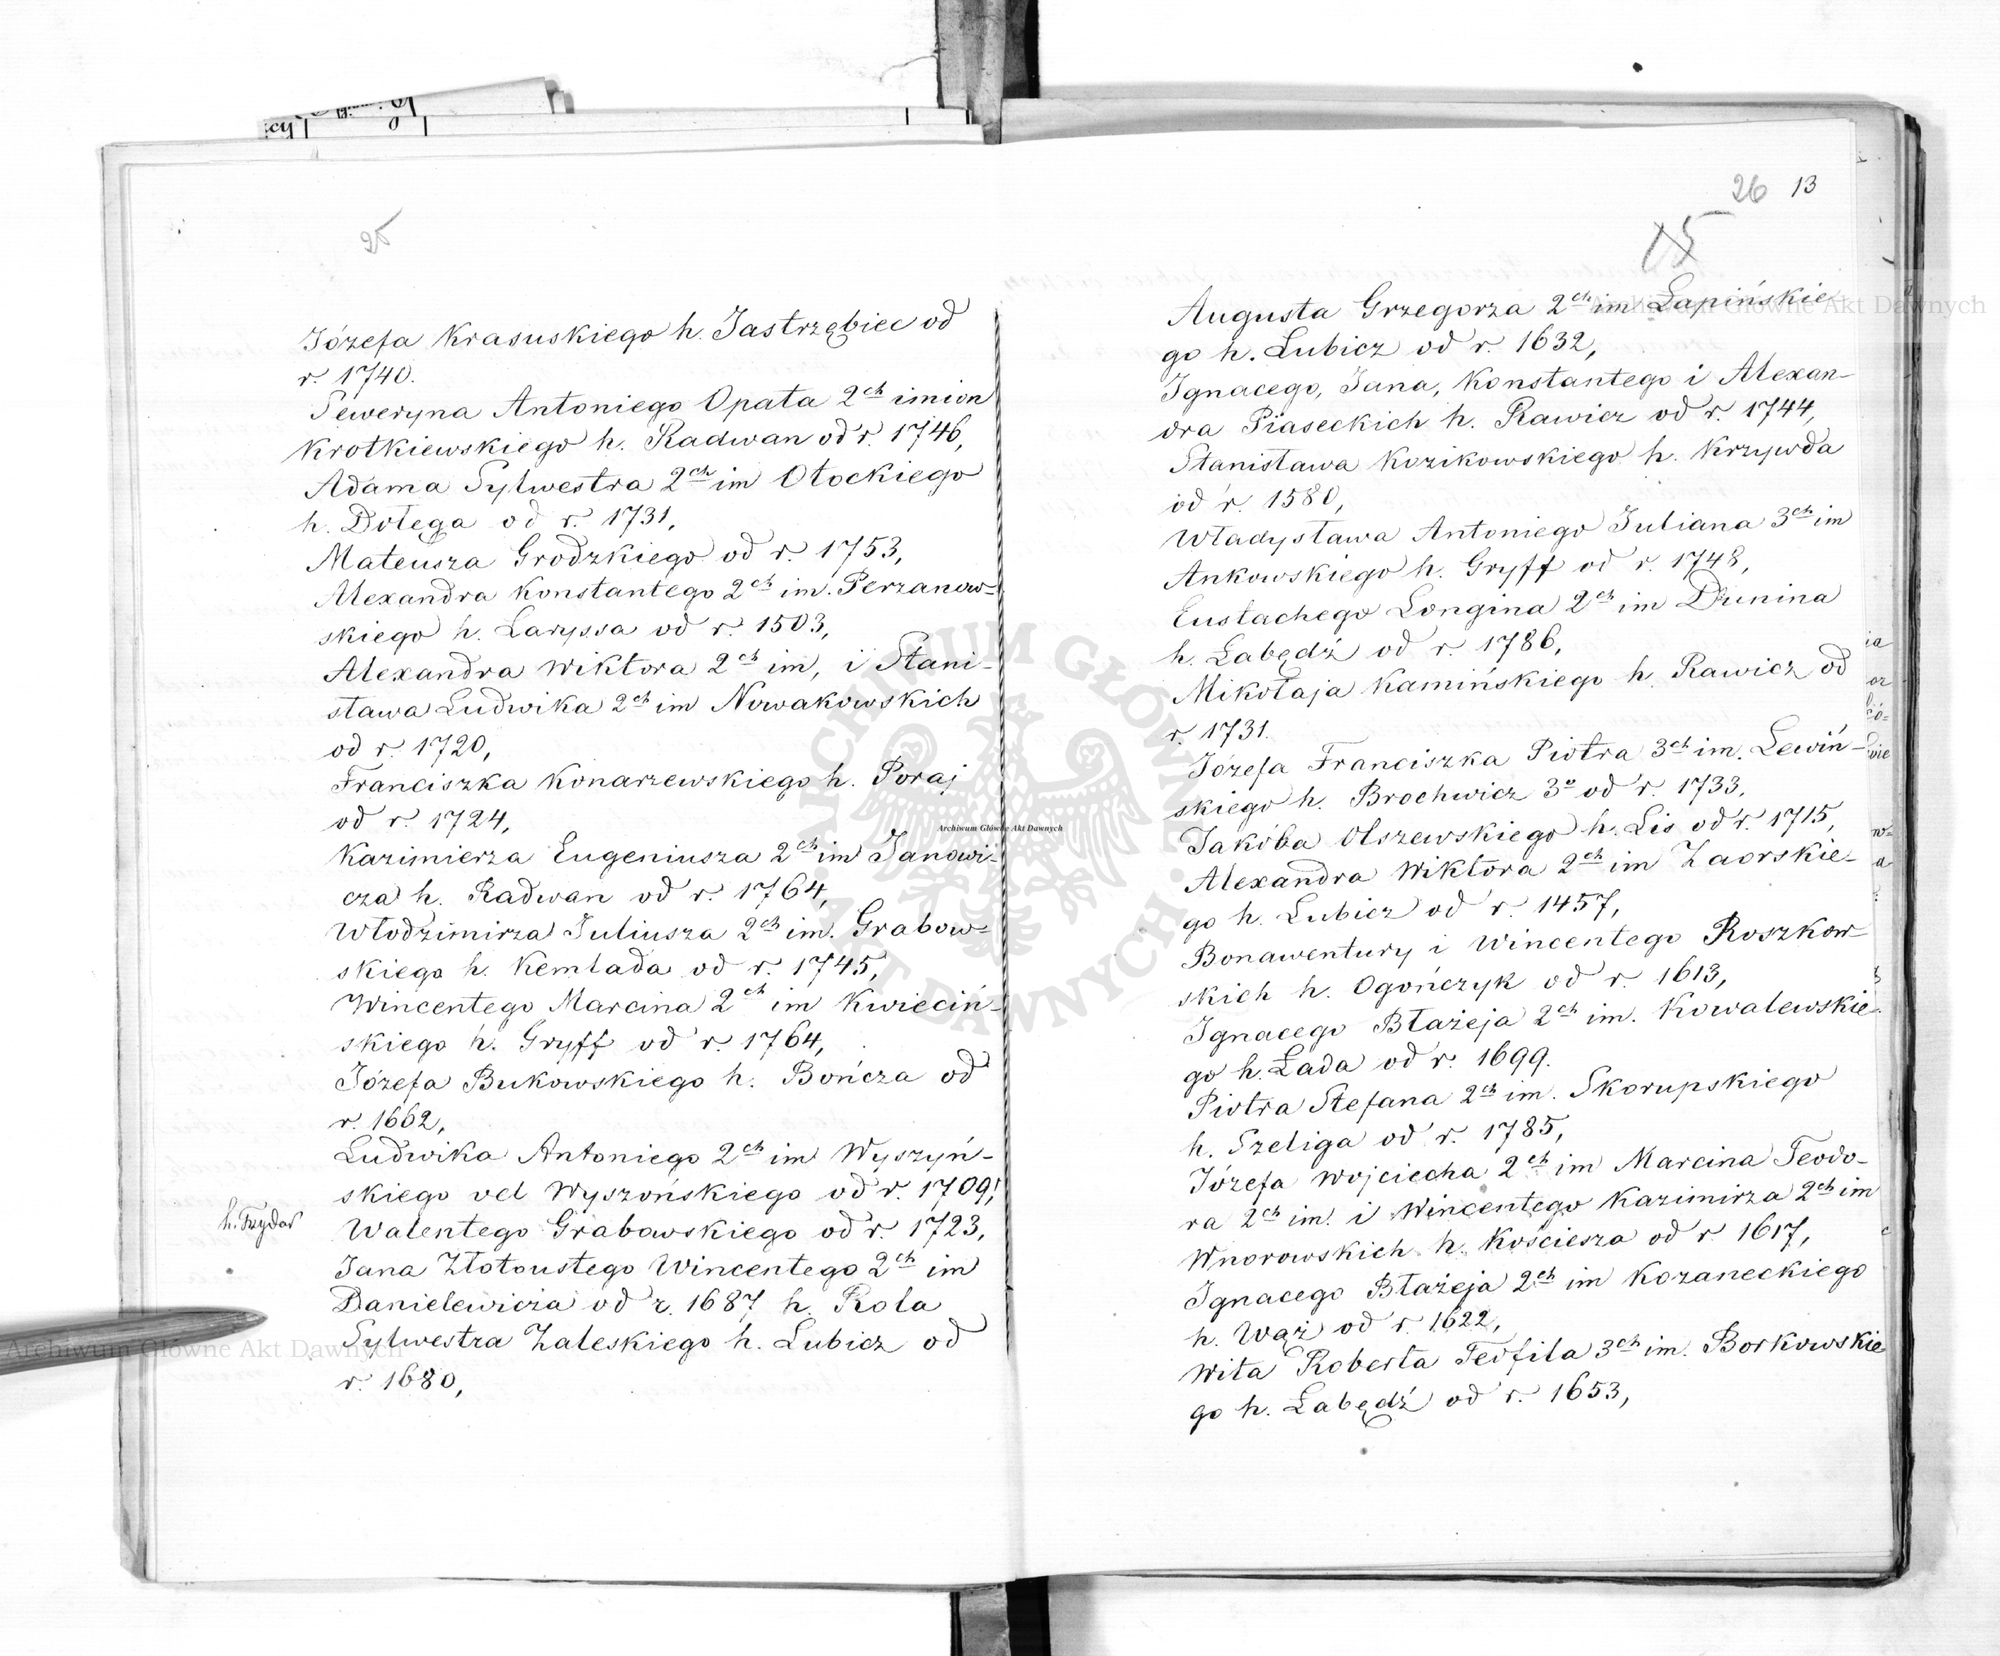 25
Józefa Krasuskiego h. Jastrzębiec od
r. 1740.
Seweryna Antoniego Opata 2ch imion
Krotkiewskiego h. Radwan od r. 1746,
Adama Sylwestra 2ch im Otockiego
h. Dołęga od r. 1731,
Mateusza Grodzkiego od r. 1753,
Alexandra Konstantego 2ch im. Perzanow-
skiego h. Laryssa od r. 1503,
Alexandra Wiktora 2ch im, i Stani-
sława Ludwika 2ch im Nowakowskich
od r. 1720,
Franciszka Konarzewskiego h. Poraj
od r. 1724,
Kazimierza Eugeniusza 2ch im Janowi-
cza h. Radwan od r. 1764,
Włodzimirza Juliusza 2ch im. Grabow-
skiego h. Kemlada od r. 1745,
Wincentego Marcina 2ch im Kwieciń-
skiego h. Gryff od r. 1764,
Józefa Bukowskiego h. Bończa od
r. 1662,
Ludwika Antoniego 2ch im Wyszyń-
skiego vel Wyszońskiego od r. 1709,
h. Walentego Grabowskiego od r. 1723,
Jana Złotoustego Wincentego 2ch im
Danielewicza od r. 1687 h. Rola
Sylwestra Zaleskiego h. Lubicz od
r. 1680,
26 13
15
Augusta Grzegorza 2ch im Łapińskie-
go h. Lubicz od r. 1632,
Ignacego, Jana, Konstantego i Alexan-
dra Piaseckich h. Rawicz od r. 1744,
Stanisława Kozikowskiego h. Krzywda
od r. 1580,
Władysława Antoniego Juliana 3ch im
Ankowskiego h. Gryff od r. 1748,
Eustachego Longina 2ch im Dunina
h. Łabędź od r. 1786,
Mikołaja Kamińskiego h. Rawicz od
r. 1731.
Józefa Franciszka Piotra 3ch im. Lewiń-
skiego h. Brochwicz 3o od r. 1733,
Jakóba Olszewskiego h. Lis od r. 1715,
Alexandra Wiktora 2ch im Zaorskie-
go h. Lubicz od r. 1457,
Bonawentury i Wincentego Roszkow-
skich h. Ogończyk od r. 1613,
Ignacego Błażeja 2ch im. Kowalewskie-
go h. Łada od r. 1699.
Piotra Stefana 2ch im. Skorupskiego
h. Szeliga od r. 1785,
Józefa Wojciecha 2ch im Marcina Teodo-
ra 2ch im. i Wincentego Kazimirza 2ch im
Wnorowskich h. Kościesza od r 1617,
Ignacego Błażeja 2ch im Kozaneckiego
h. Wąż od r. 1622,
Wita Roberta Teofila 3ch im. Borkowskie
go h. Łabędź od r. 1653,
Archiwum Główne Akt Dawnych
Archiwum Główne Akt Dawnych
Archiwum Główne Akt Dawnych
ARCHIWUM GŁÓWNE AKT DAWNYCH